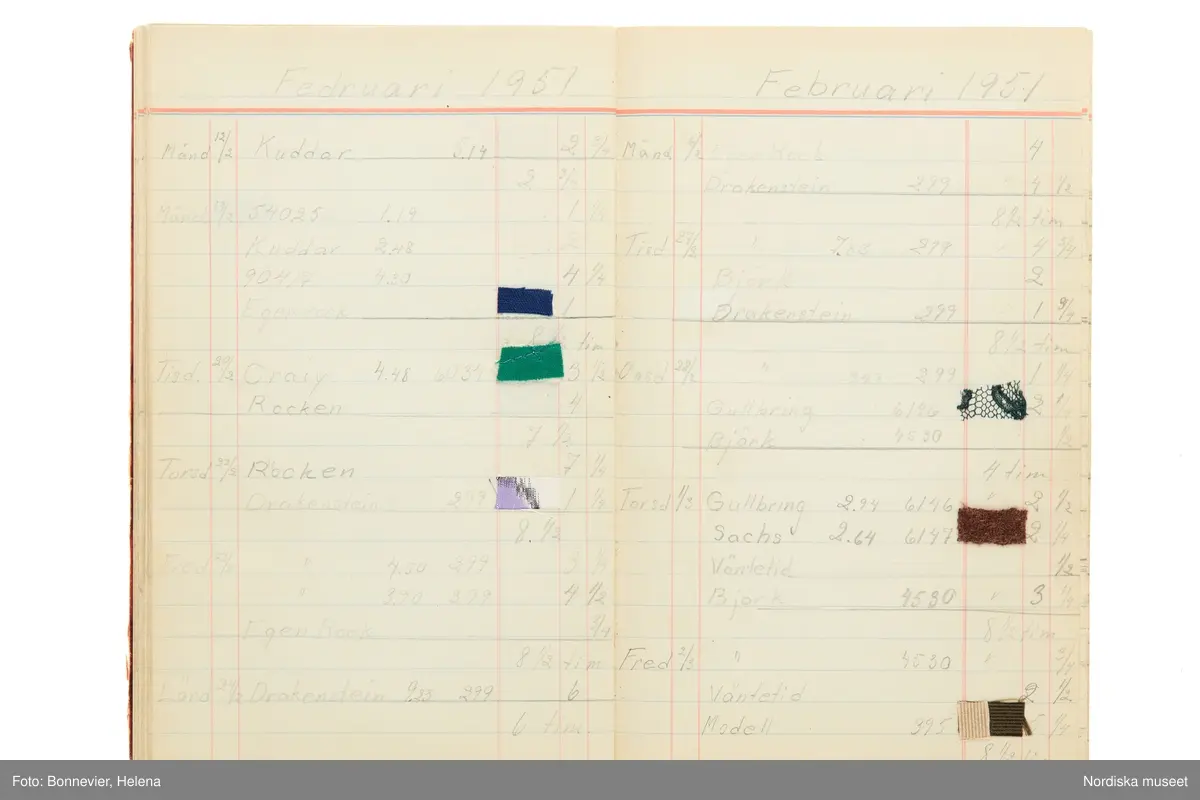 Fedruari 1951
Månd 12/2 Kuddar 5.14 2 3/4
2 3/4
Månd 54025 1.19 1 1/4
Kuddar 2.48 2
4.30 4 1/4
1
8 1/2 tim
Tisd. 20/2 Craiy 4.48 3 1/2
Rocken 4
7 1/2
Torsd 22/2 Roocken 7 1/4
Drakenstein 299 1 1/4
8. 1/2
" 7.50 299 3 1/4
" 3.90 4 1/2
Egen Rock 3/4
8 1/2 tim
Drakenstein 9.35 299 6
6 tim
Februari 1951
Månd 4
Drakenstein 299 4 1/2
8 1/2 tim
Tisd 27/2 " 4 3/4
Björk 2
Drakenstein 299 1 3/4
8 1/2 tim
28/2 " 299 1 1/4
Gullbring 6146 2 1/4
Björk 4530 1/2
4 tim
Torsd 1/3 Gullbring 2.94 6146 " 2 1/2
Sachs 2.64 6147 2 1/4
Väntetid 1/2
Björk 4530 " 3 1/4
8 1/2 tim
Fred 2/3 " 4530 " 3/4
Väntetid 2 1/2
Modell 395 5 1/4
8 1/2
Foto: Bonnevier, Helena
Nordiska museet